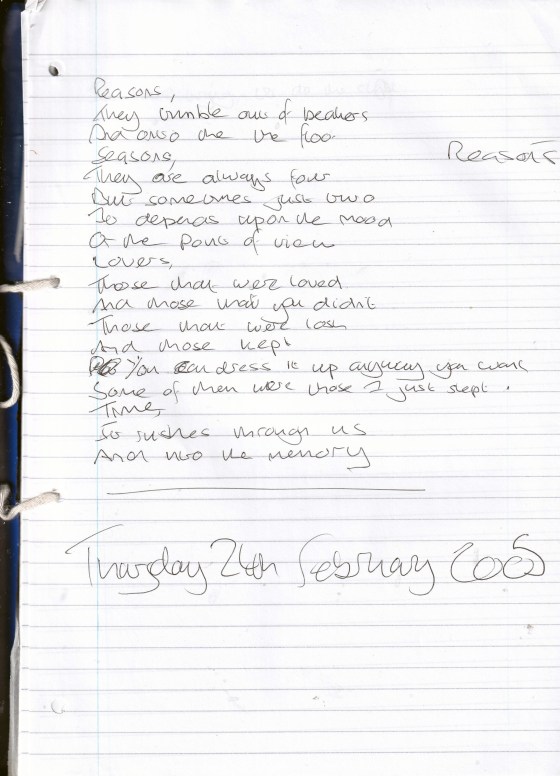 Reasons
Reasons,
They tumble out of beakers
And onto the the floor
Seasons,
They are always four
But sometimes just two
It depends upon the mood
Or the point of view
Lovers,
Those that were loved
And those that you didn't
Those that were lost
And those kept
You can dress it up anyway you want
Some of them were those I just slept.
Time,
It rushes through us
And into the memory
Thursday 24th February 2005